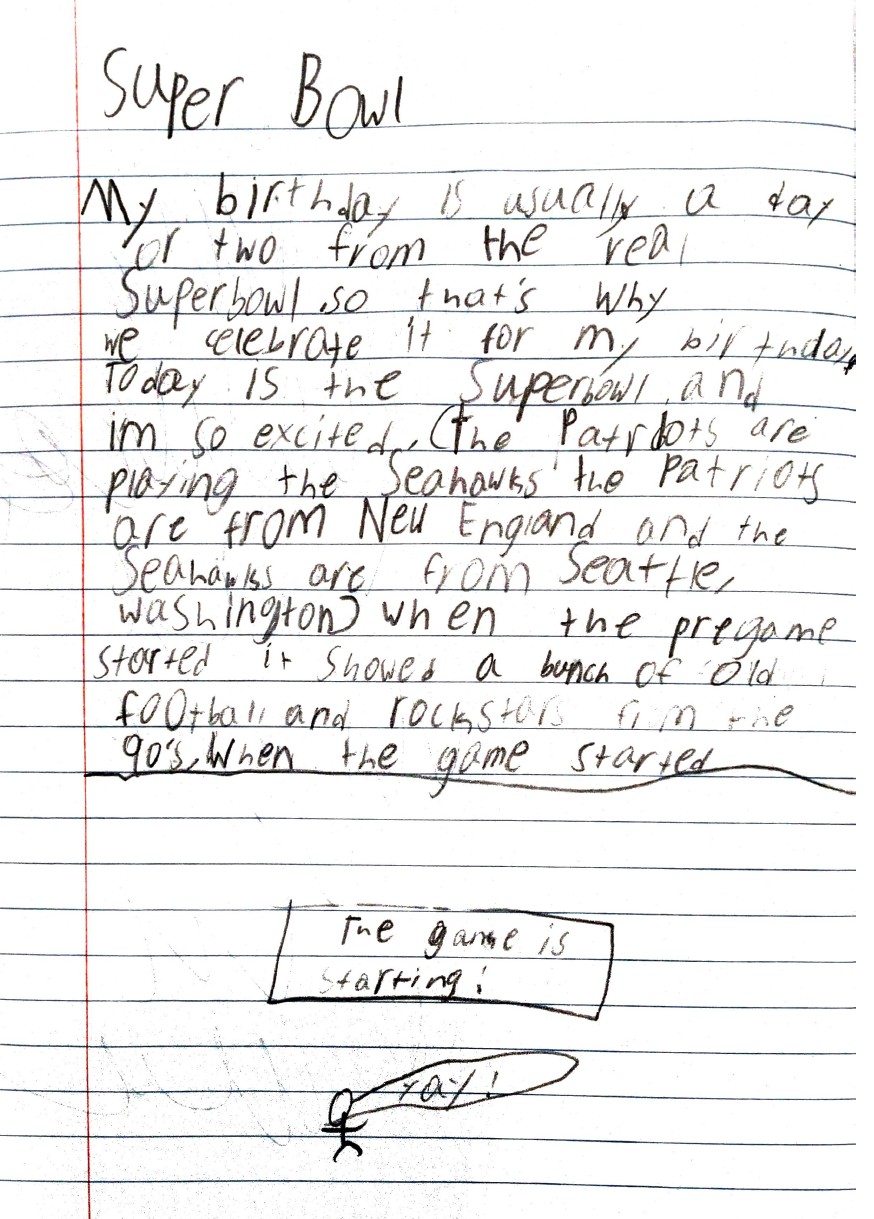 Super Bowl
My birthday is usually a day
or two from the real
Superbowl so that's why
we celebrate it for my birthday.
Today is the Superbowl and
im so excited, (The Patriots are
playing the Seahawks the Patriots
are from New England and the
Seahawks are from Seattle,
washington) when the pregame
started it showed a bunch of old
football and rockstars from the
90's, When the game started
The game is
starting!
Yay!